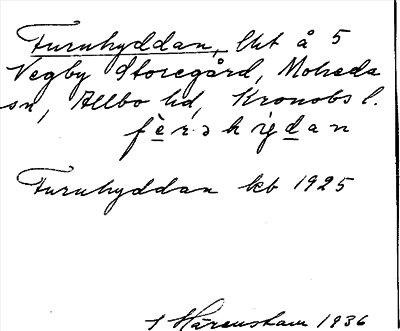 Furuhyddan, lht å 5
Vegby Storegård, Moheda
sn, Allbo hd, Kronobs l.
Furuhyddan kb 1925
Härenstam 1936